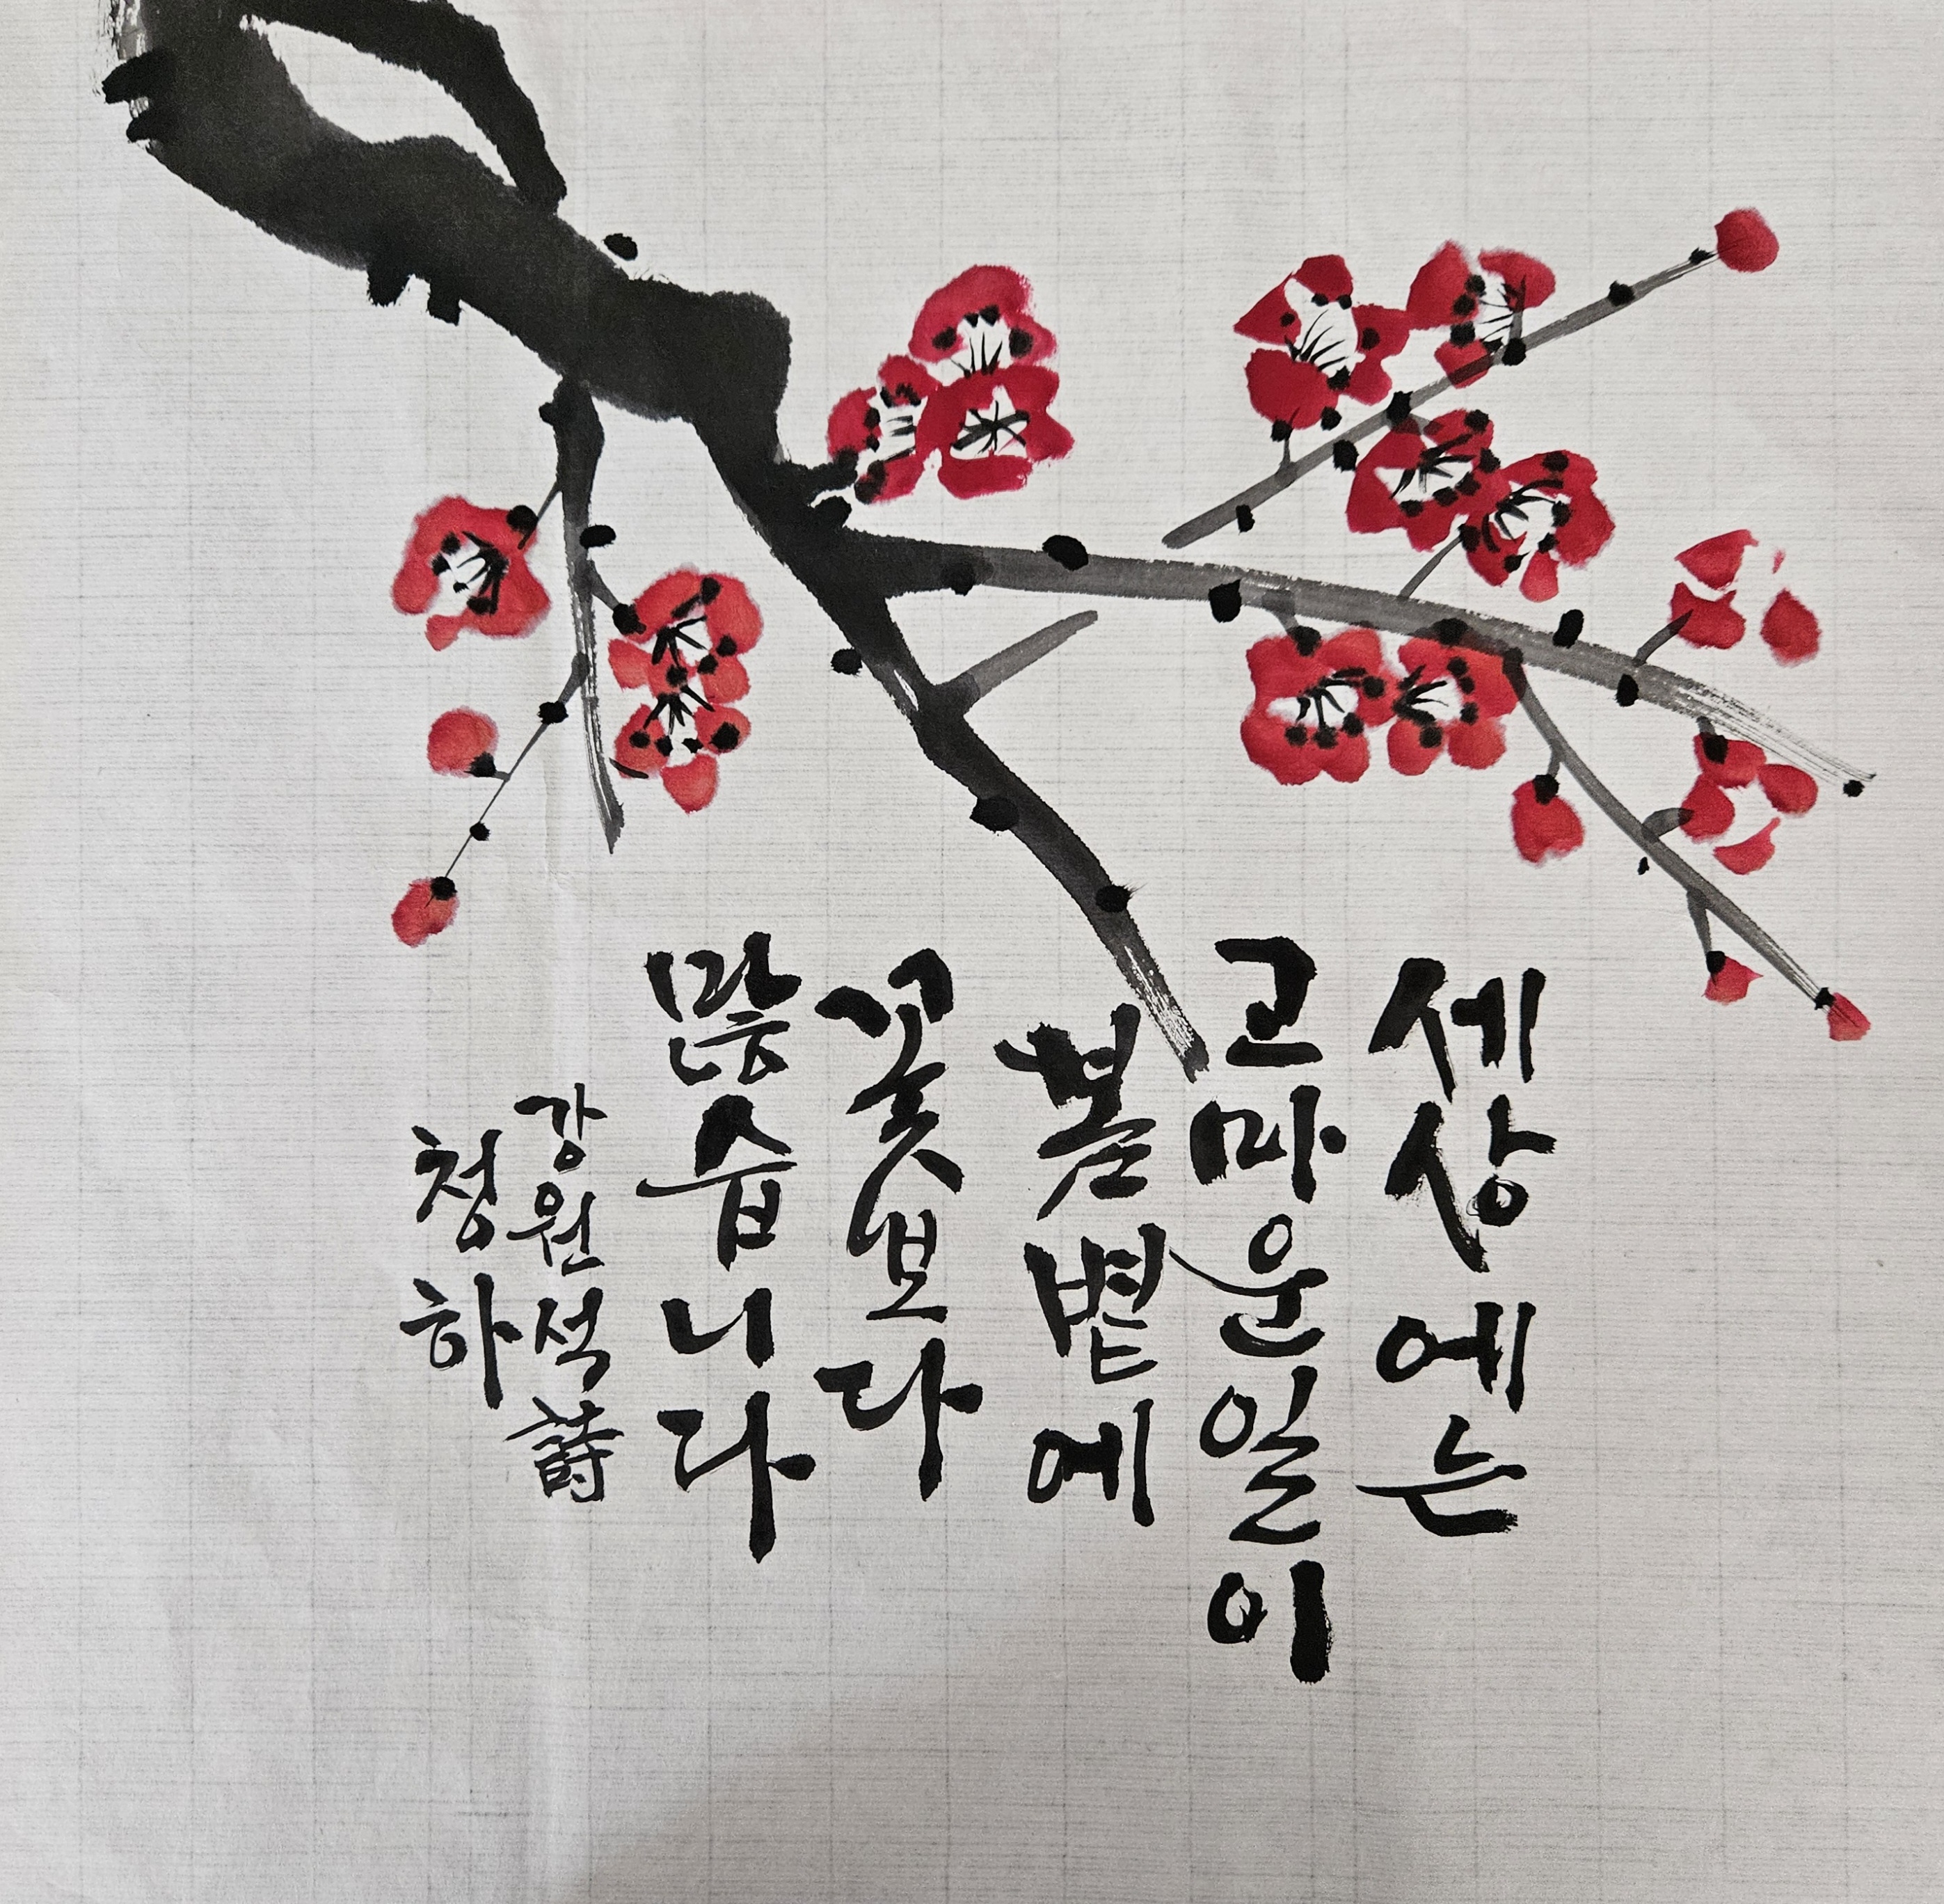 세상에는
고마운일이
봄볕에
꽃보다
많습니다
강원석 詩
청하